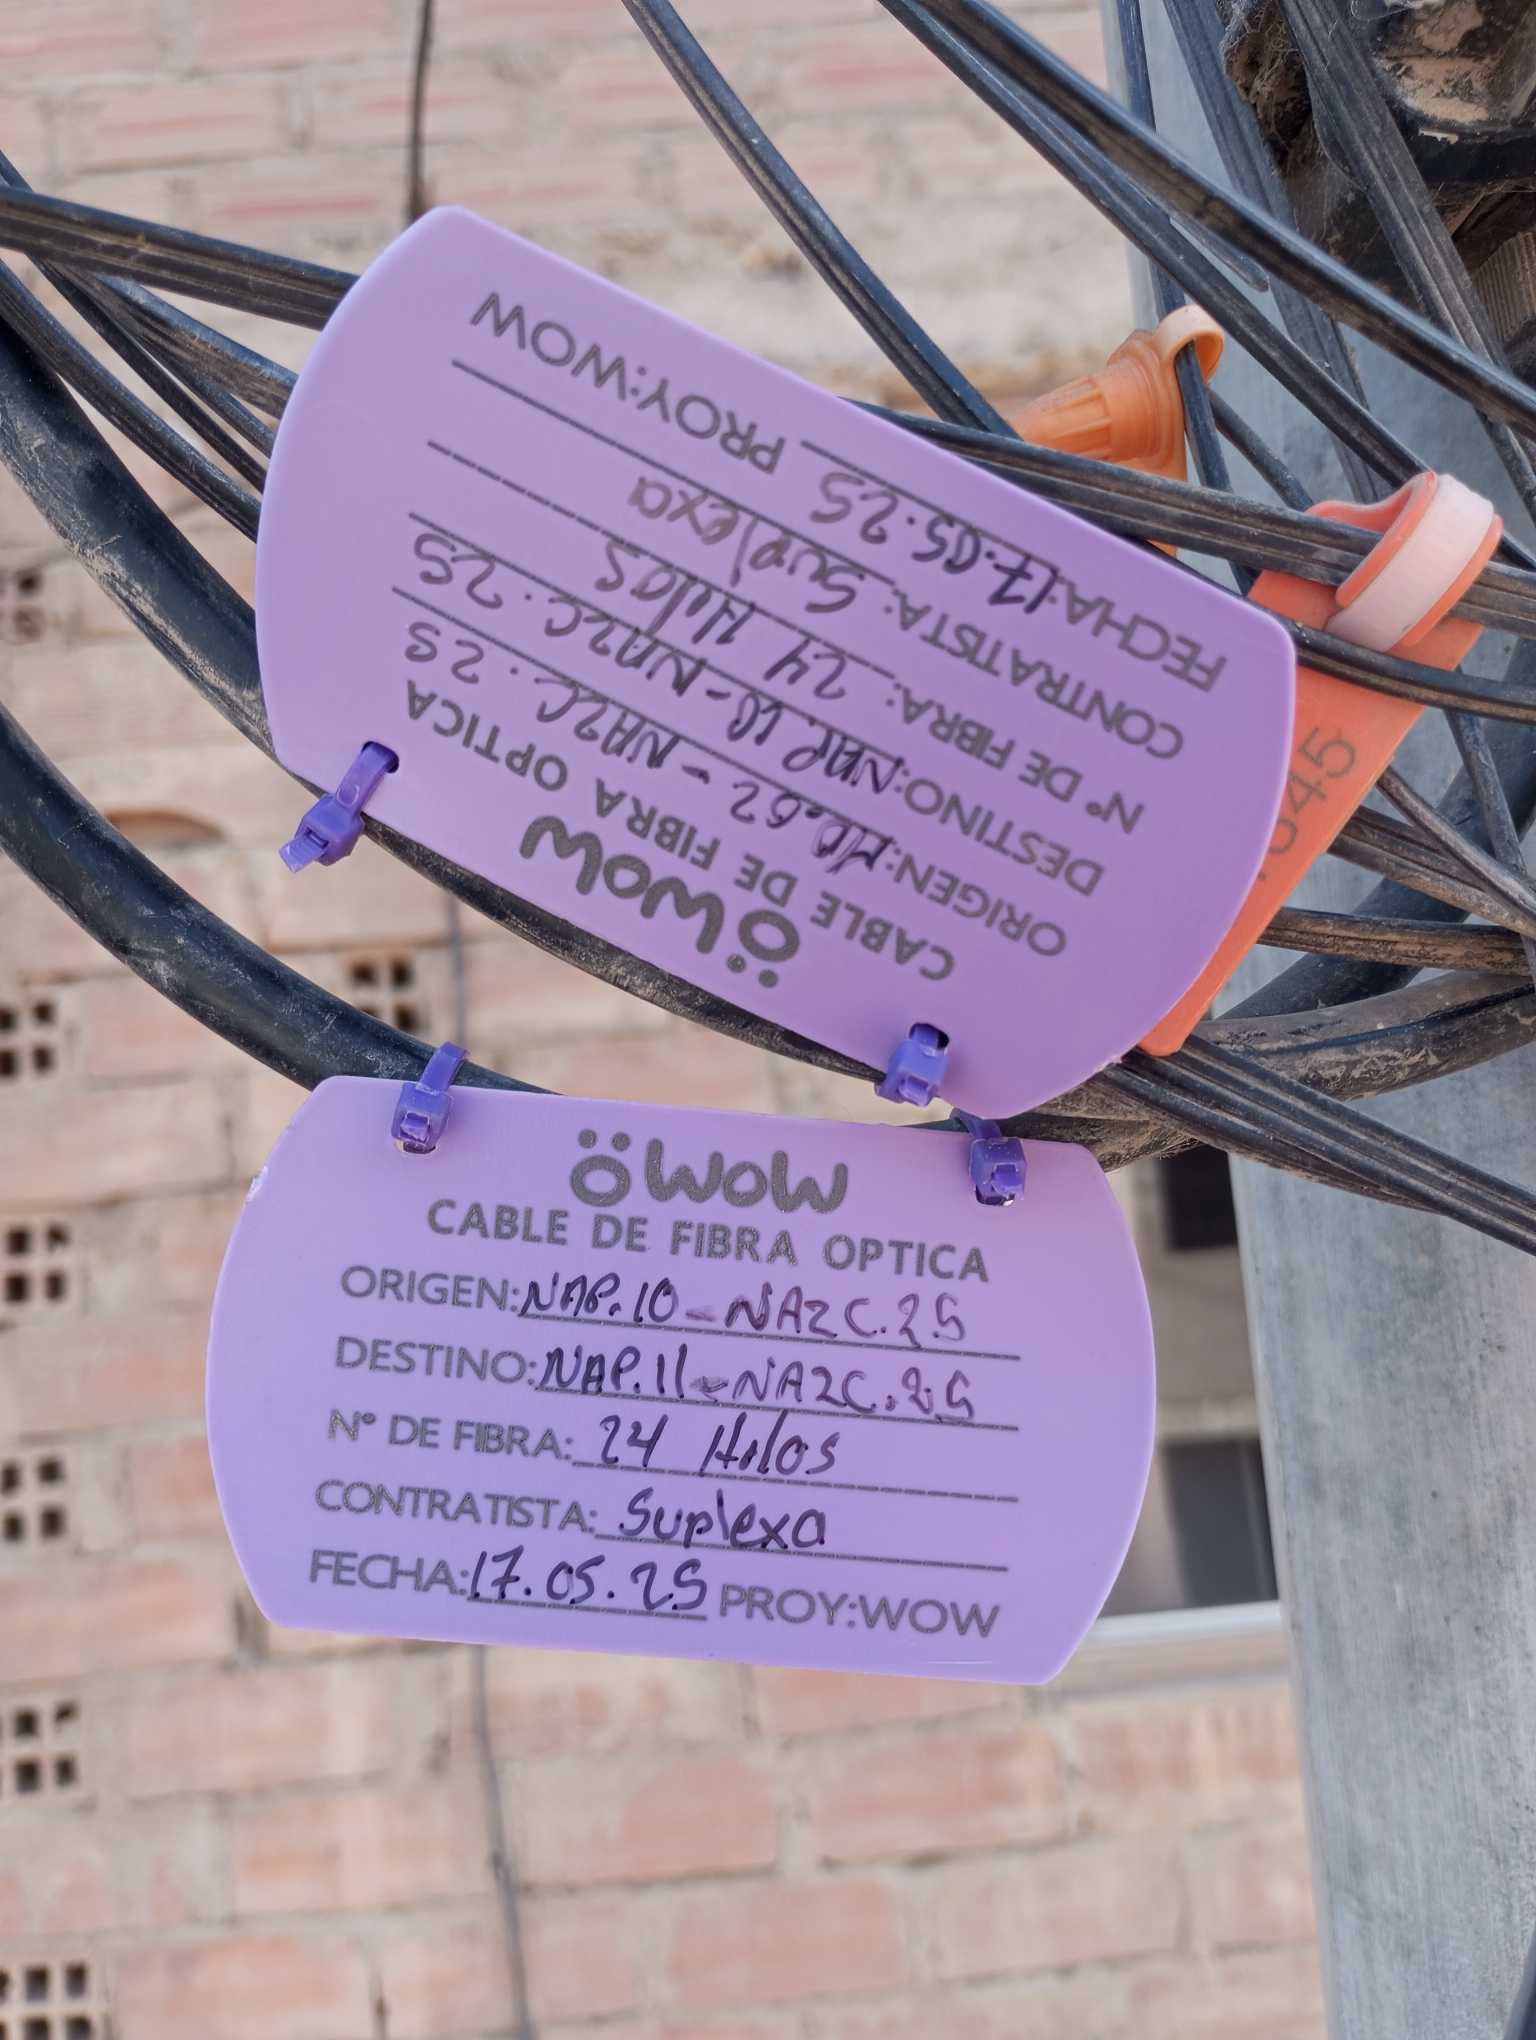 wow
CABLE DE FIBRA OPTICA
ORIGEN: MD.62 - NA2C.25
DESTINO: NAP.10 - NA2C.25
N° DE FIBRA: 24 Hilos
CONTRATISTA: Suplexa
FECHA: 17.05.25 PROY:WOW
wow
CABLE DE FIBRA OPTICA
ORIGEN: NAP.10 - NA2C.25
DESTINO: NAP.11 - NA2C.25
N° DE FIBRA: 24 Hilos
CONTRATISTA: Suplexa
FECHA: 17.05.25 PROY:WOW